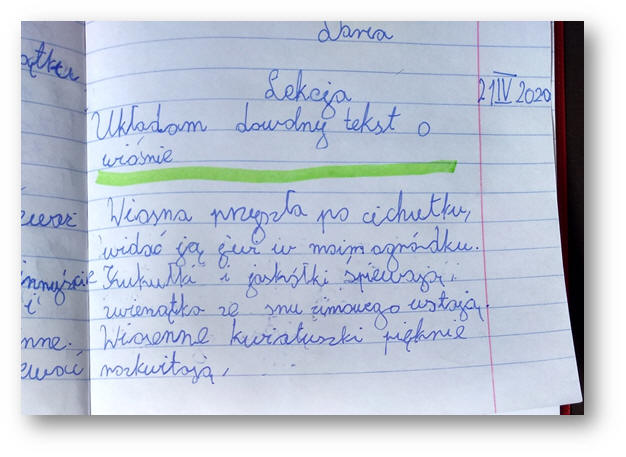 Daria
Lekcja
21 IV 2020
Układam dowolny tekst o
wiośnie
Wiosna przyszła po cichutku,
widać ją już w moim ogródku.
Kukułki i jaskółki śpiewają,
zwieriątka ze snu zimowego wstają.
Wiosenne kwiatuszki pięknie
rozkwitają,
i
nne.